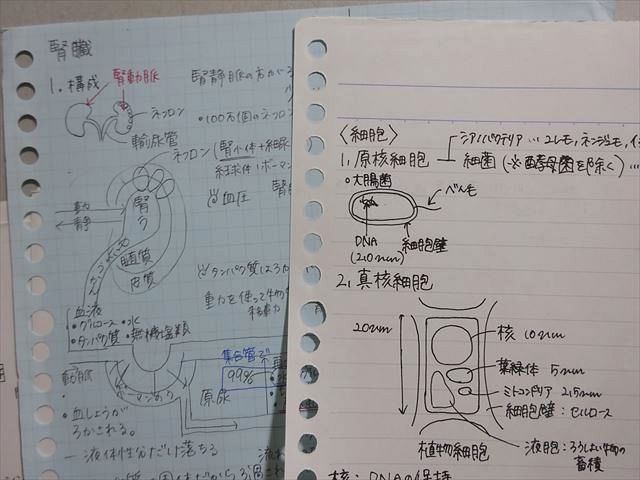 腎臓
1. 構成
腎動脈
腎静脈の方が
ネフロン
・100万個のネフロン
輸尿管
ネフロン(腎小体+細尿
糸球体,ボーマン
血圧
動
静
腎う
髄質
皮質
タンパク質は
重力を使って
血液
・グルコース・水
・タンパク質・無機塩類
動脈
集合管で
99%
原尿
・血しょうが
ろかされる。
― 液体性分だけ落ちる
〈細胞〉
シアノバクテリア … ユレモ、ネンジュモ、イ
1, 原核細胞
細菌 (※酵母菌を除く) …
・大腸菌
べん毛
DNA
(2.0nm)
細胞壁
2, 真核細胞
20μm
核 10μm
葉緑体 5μm
ミトコンドリア 2.5μm
細胞壁:セルロース
液胞:ろうはい物の
蓄積
植物細胞
核:DNAの保持